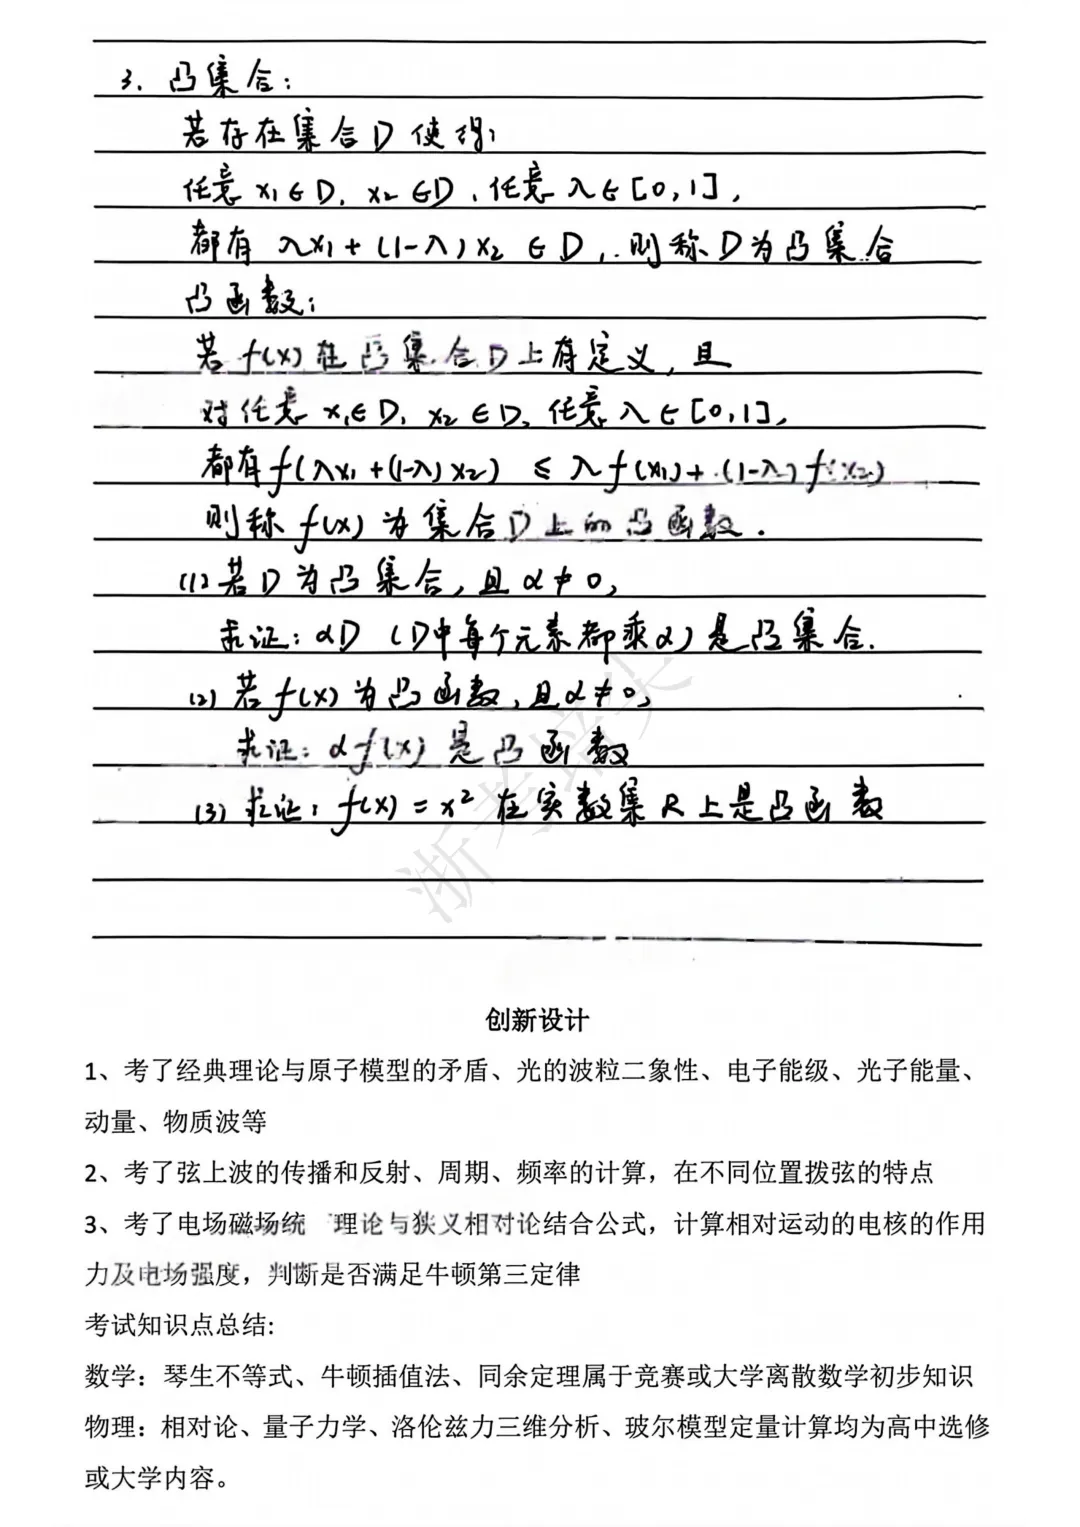 3. 凸集合：
若存在集合D使得：
任意 x₁∈D, x₂∈D, 任意 λ∈[0,1],
都有 λx₁+(1-λ)x₂ ∈ D, 则称D为凸集合
凸函数：
若 f(x) 在凸集合D上有定义, 且
对任意 x₁∈D, x₂∈D, 任意 λ∈[0,1],
都有 f(λx₁+(1-λ)x₂) ≤ λf(x₁)+(1-λ)f(x₂)
则称 f(x) 为集合D上的凸函数.
(1) 若D为凸集合, 且 α≠0,
求证：αD (D中每个元素都乘α) 是凸集合.
(2) 若 f(x) 为凸函数, 且 α≠0,
求证：αf(x) 是凸函数
(3) 求证：f(x)=x² 在实数集R上是凸函数
浙考培尖
创新设计
1、考了经典理论与原子模型的矛盾、光的波粒二象性、电子能级、光子能量、
动量、物质波等
2、考了弦上波的传播和反射、周期、频率的计算，在不同位置拨弦的特点
3、考了电场磁场统 理论与狭义相对论结合公式，计算相对运动的电核的作用
力及电场强度，判断是否满足牛顿第三定律
考试知识点总结:
数学：琴生不等式、牛顿插值法、同余定理属于竞赛或大学离散数学初步知识
物理：相对论、量子力学、洛伦兹力三维分析、玻尔模型定量计算均为高中选修
或大学内容。